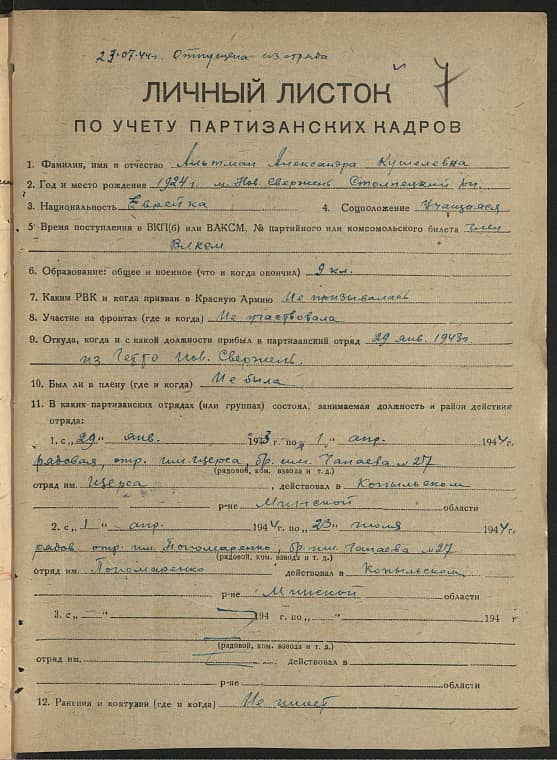 23.07.44г. Отпущена из отряда
7
ЛИЧНЫЙ ЛИСТОК
ПО УЧЕТУ ПАРТИЗАНСКИХ КАДРОВ
1. Фамилия, имя и отчество Альтман Александра Кушелевна
2. Год и место рождения 1924 г. м. Нов. Свержень Столпецкий
3. Национальность Еврейка 4. Соцположение Учащаяся
5. Время поступления в ВКП(б) или ВЛКСМ, № партийного или комсомольского билета член
Влксм
6. Образование: общее и военное (что и когда окончил) 9 кл.
7. Каким РВК и когда призван в Красную Армию Не призывалась
8. Участие на фронтах (где и когда) Не участвовала
9. Откуда, когда и с какой должности прибыл в партизанский отряд 29 янв. 1943г.
из Гетто Нов. Свержень.
10. Был ли в плену (где и когда) Не была
11. В каких партизанских отрядах (или группах) состоял, занимаемая должность и район действия
отряда:
1. с „29" янв. 1943 г. по „1" апр. 1944 г.
рядовая, отр. им. Щорса, бр. им. Чапаева №27
(рядовой, ком. взвода и т. д.)
отряд им. Щорса, действовал в Копыльском
р-не Минской области
2. с „1" апр. 1944 г. по „23" июля 1944 г.
рядов. отр. им. Пономаренко, бр. им. Чапаева №27
(рядовой, ком. взвода и т. д.)
отряд им. Пономаренко действовал в Копыльском
р-не Минской области
3. с „—" 194 г. по „—" 194 г
(рядовой, ком. взвода и т. д.)
отряд им. действовал в
р-не области
12. Ранения и контузии (где и когда) Не имеет